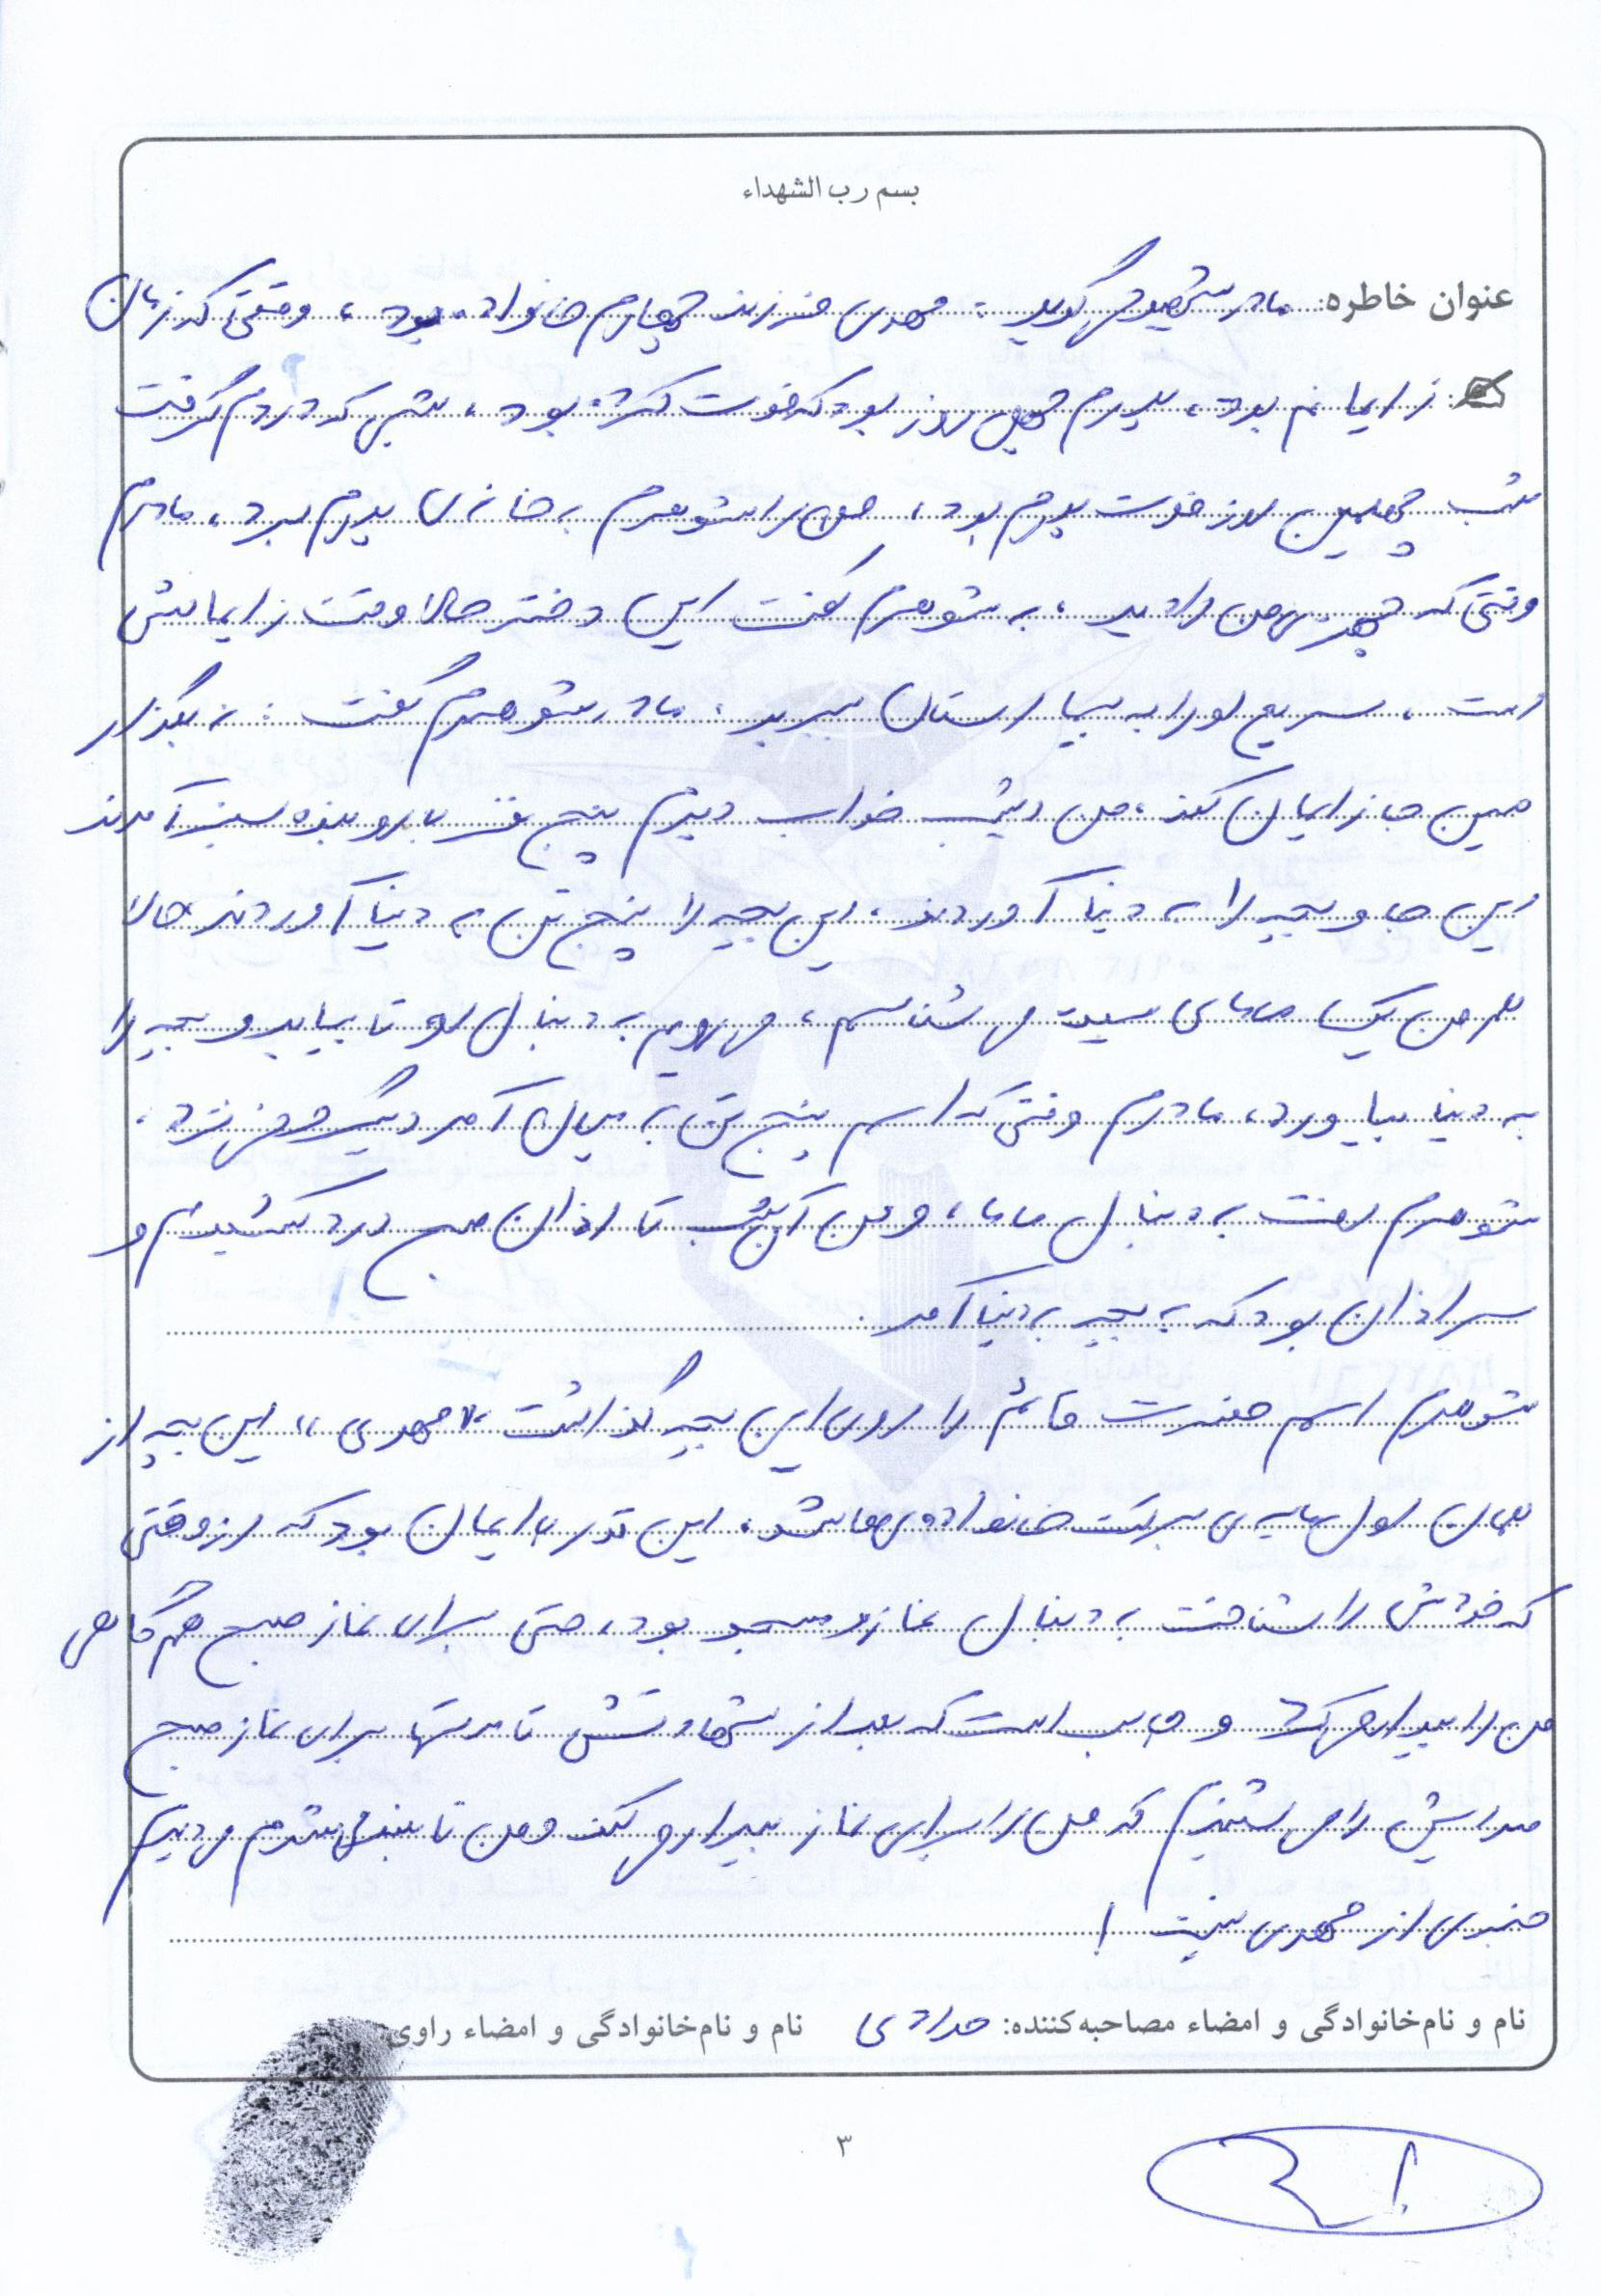 بسم رب الشهداء
عنوان خاطره: مادر شهید می گوید: مهدی فرزند چهارم خانواده بود، وقتی که زمان
زایمانم بود، پدرم چهل روز بود که فوت کرده بود، شبی که دردم گرفت
شب چهلمین روز فوت پدرم بود، من را شوهرم به خانه ی پدرم برد، مادرم
وقتی که چهره من را دید، به شوهرم گفت این دختر حالا وقت زایمانش
است، سریع او را به بیمارستان ببرید، مادر شوهرم گفت: نه بگذار
همین جا زایمان کند، من دیشب خواب دیدم پنج نفر با روبنده سبز آمدند
این جا و بچه را به دنیا آوردند، این بچه را پنج تن به دنیا آوردند حالا
هم من یک مامای سید می شناسم، می رویم به دنبال او تا بیاید و بچه را
به دنیا بیاورد، مادرم وقتی که اسم پنج تن به میان آمد دیگر حرفی نزد،
شوهرم رفت به دنبال ماما، و من آن شب تا اذان صبح درد کشیدم و
سر اذان بود که به بچه به دنیا آمد.
شوهرم اسم حضرت قائم را روی این بچه گذاشت، «مهدی»، این بچه از
همان اول مایه ی برکت خانواده ی ما شد، این قدر با ایمان بود که از وقتی
که خودش را شناخت به دنبال نماز و مسجد بود، حتی برای نماز صبح هم گاهی
من را بیدار می کرد و جالب است که بعد از شهادتش تا مدتها برای نماز صبح
صدایش را می شنیدم که من را برای نماز بیدار می کند و من تا بلند می شدم می دیدم
خبری از مهدی نیست!
نام و نام‌خانوادگی و امضاء مصاحبه‌کننده: مدادی نام و نام‌خانوادگی و امضاء راوی:
۳